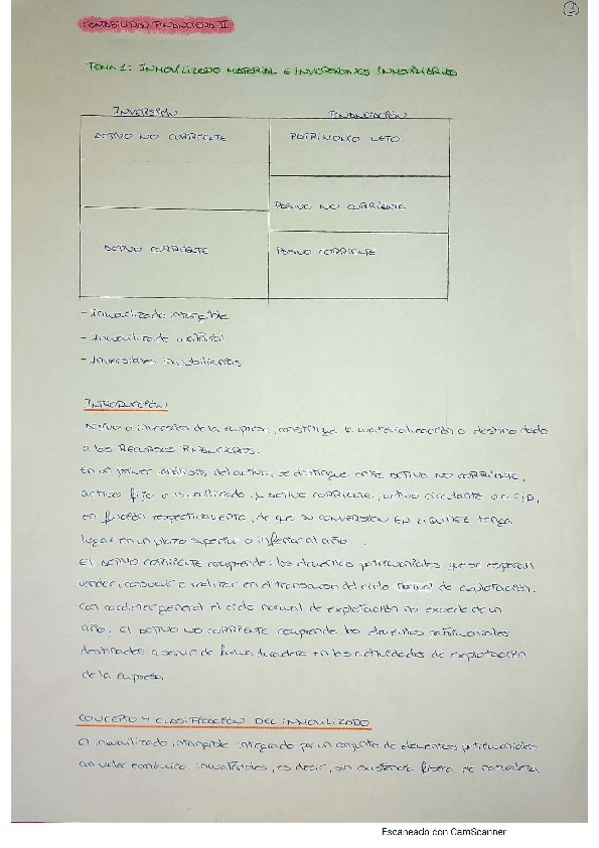 1
CONTABILIDAD FINANCIERA II
TEMA 1: INMOVILIZADO MATERIAL E INVERSIONES INMOBILIARIAS
INVERSIÓN
FINANCIACIÓN
ACTIVO NO CORRIENTE
PATRIMONIO NETO
PASIVO NO CORRIENTE
ACTIVO CORRIENTE
PASIVO CORRIENTE
- Inmovilizado intangible
- Inmovilizado material
- Inversiones inmobiliarias
INTRODUCCIÓN
Activo o inversión de la empresa, constituye la materialización o destino dado
a los RECURSOS FINANCIEROS.
En un primer análisis del activo, se distingue entre ACTIVO NO CORRIENTE,
activo fijo o inmovilizado, y ACTIVO CORRIENTE, activo circulante o a C/P,
en función respectivamente, de que su CONVERSIÓN EN LIQUIDEZ tenga
lugar en un plazo superior o inferior al año.
El ACTIVO CORRIENTE comprende: los elementos patrimoniales que se esperan
vender, consumir o realizar en el transcurso del ciclo normal de explotación.
Con carácter general el ciclo normal de explotación no excede de un
año. El ACTIVO NO CORRIENTE comprende los elementos patrimoniales
destinados a servir de forma duradera en las actividades de explotación
de la empresa.
CONCEPTO Y CLASIFICACIÓN DEL INMOVILIZADO
El inmovilizado intangible integrado por un conjunto de elementos patrimoniales
con valor económico inmateriales, es decir, sin existencia física de naturaleza
Escaneado con CamScanner